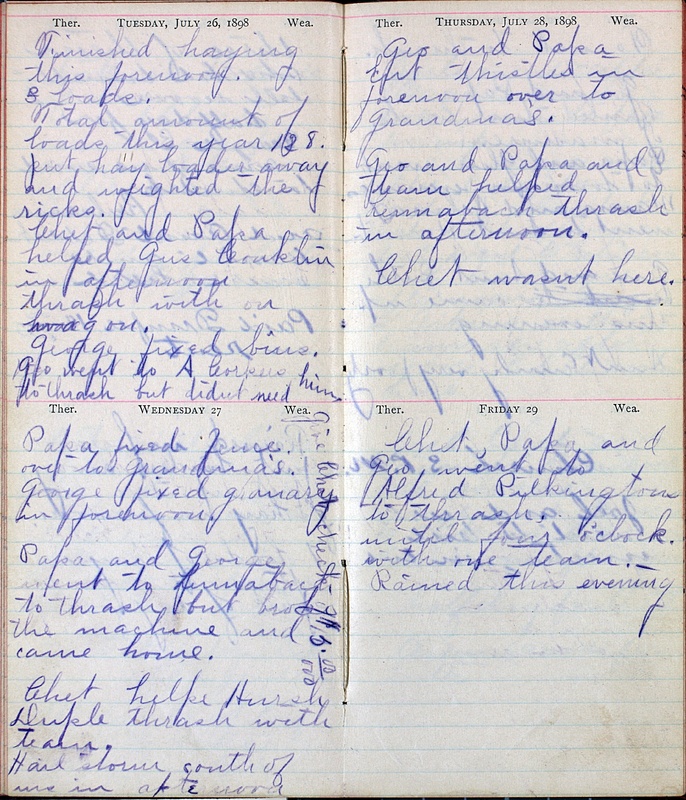 Ther. TUESDAY, JULY 26, 1898 Wea.
Finished haying
this forenoon.
3 loads.
Total amount of
loads this year 128.
put hay loader away
and weighted the
ricks.
Chet and Papa
helped Gus Conklin
in afternoon
thrash with our
wagon.
George fixed bins.
Geo went to A him
to thrash but didnt need
Ther. WEDNESDAY 27 Wea.
Papa fixed fence.
over to Grandma's.
George fixed granary
in forenoon.
Papa and George
went to Rennabach
to thrash but broke
the machine and
came home.
Chet helpe Hursh
thrash with
team.
Hail storm south of
us in afternoon
Give Chet check $15.00
Ther. THURSDAY, JULY 28, 1898 Wea.
Geo and Papa
cut thistles in
forenoon over to
Grandma's.
Geo and Papa and
team helped
Rennabach thrash
in afternoon.
Chet wasnt here.
Ther. FRIDAY 29 Wea.
Chet, Papa, and
Geo, went to
Alfred Pilkingtons
to thrash.
until four o'clock.
with one team.
Rained this evening